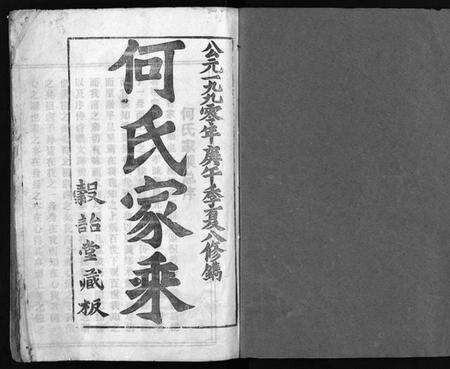 公元一九九零年庚午季夏八修鐫
何氏家乘
穀詒堂藏板